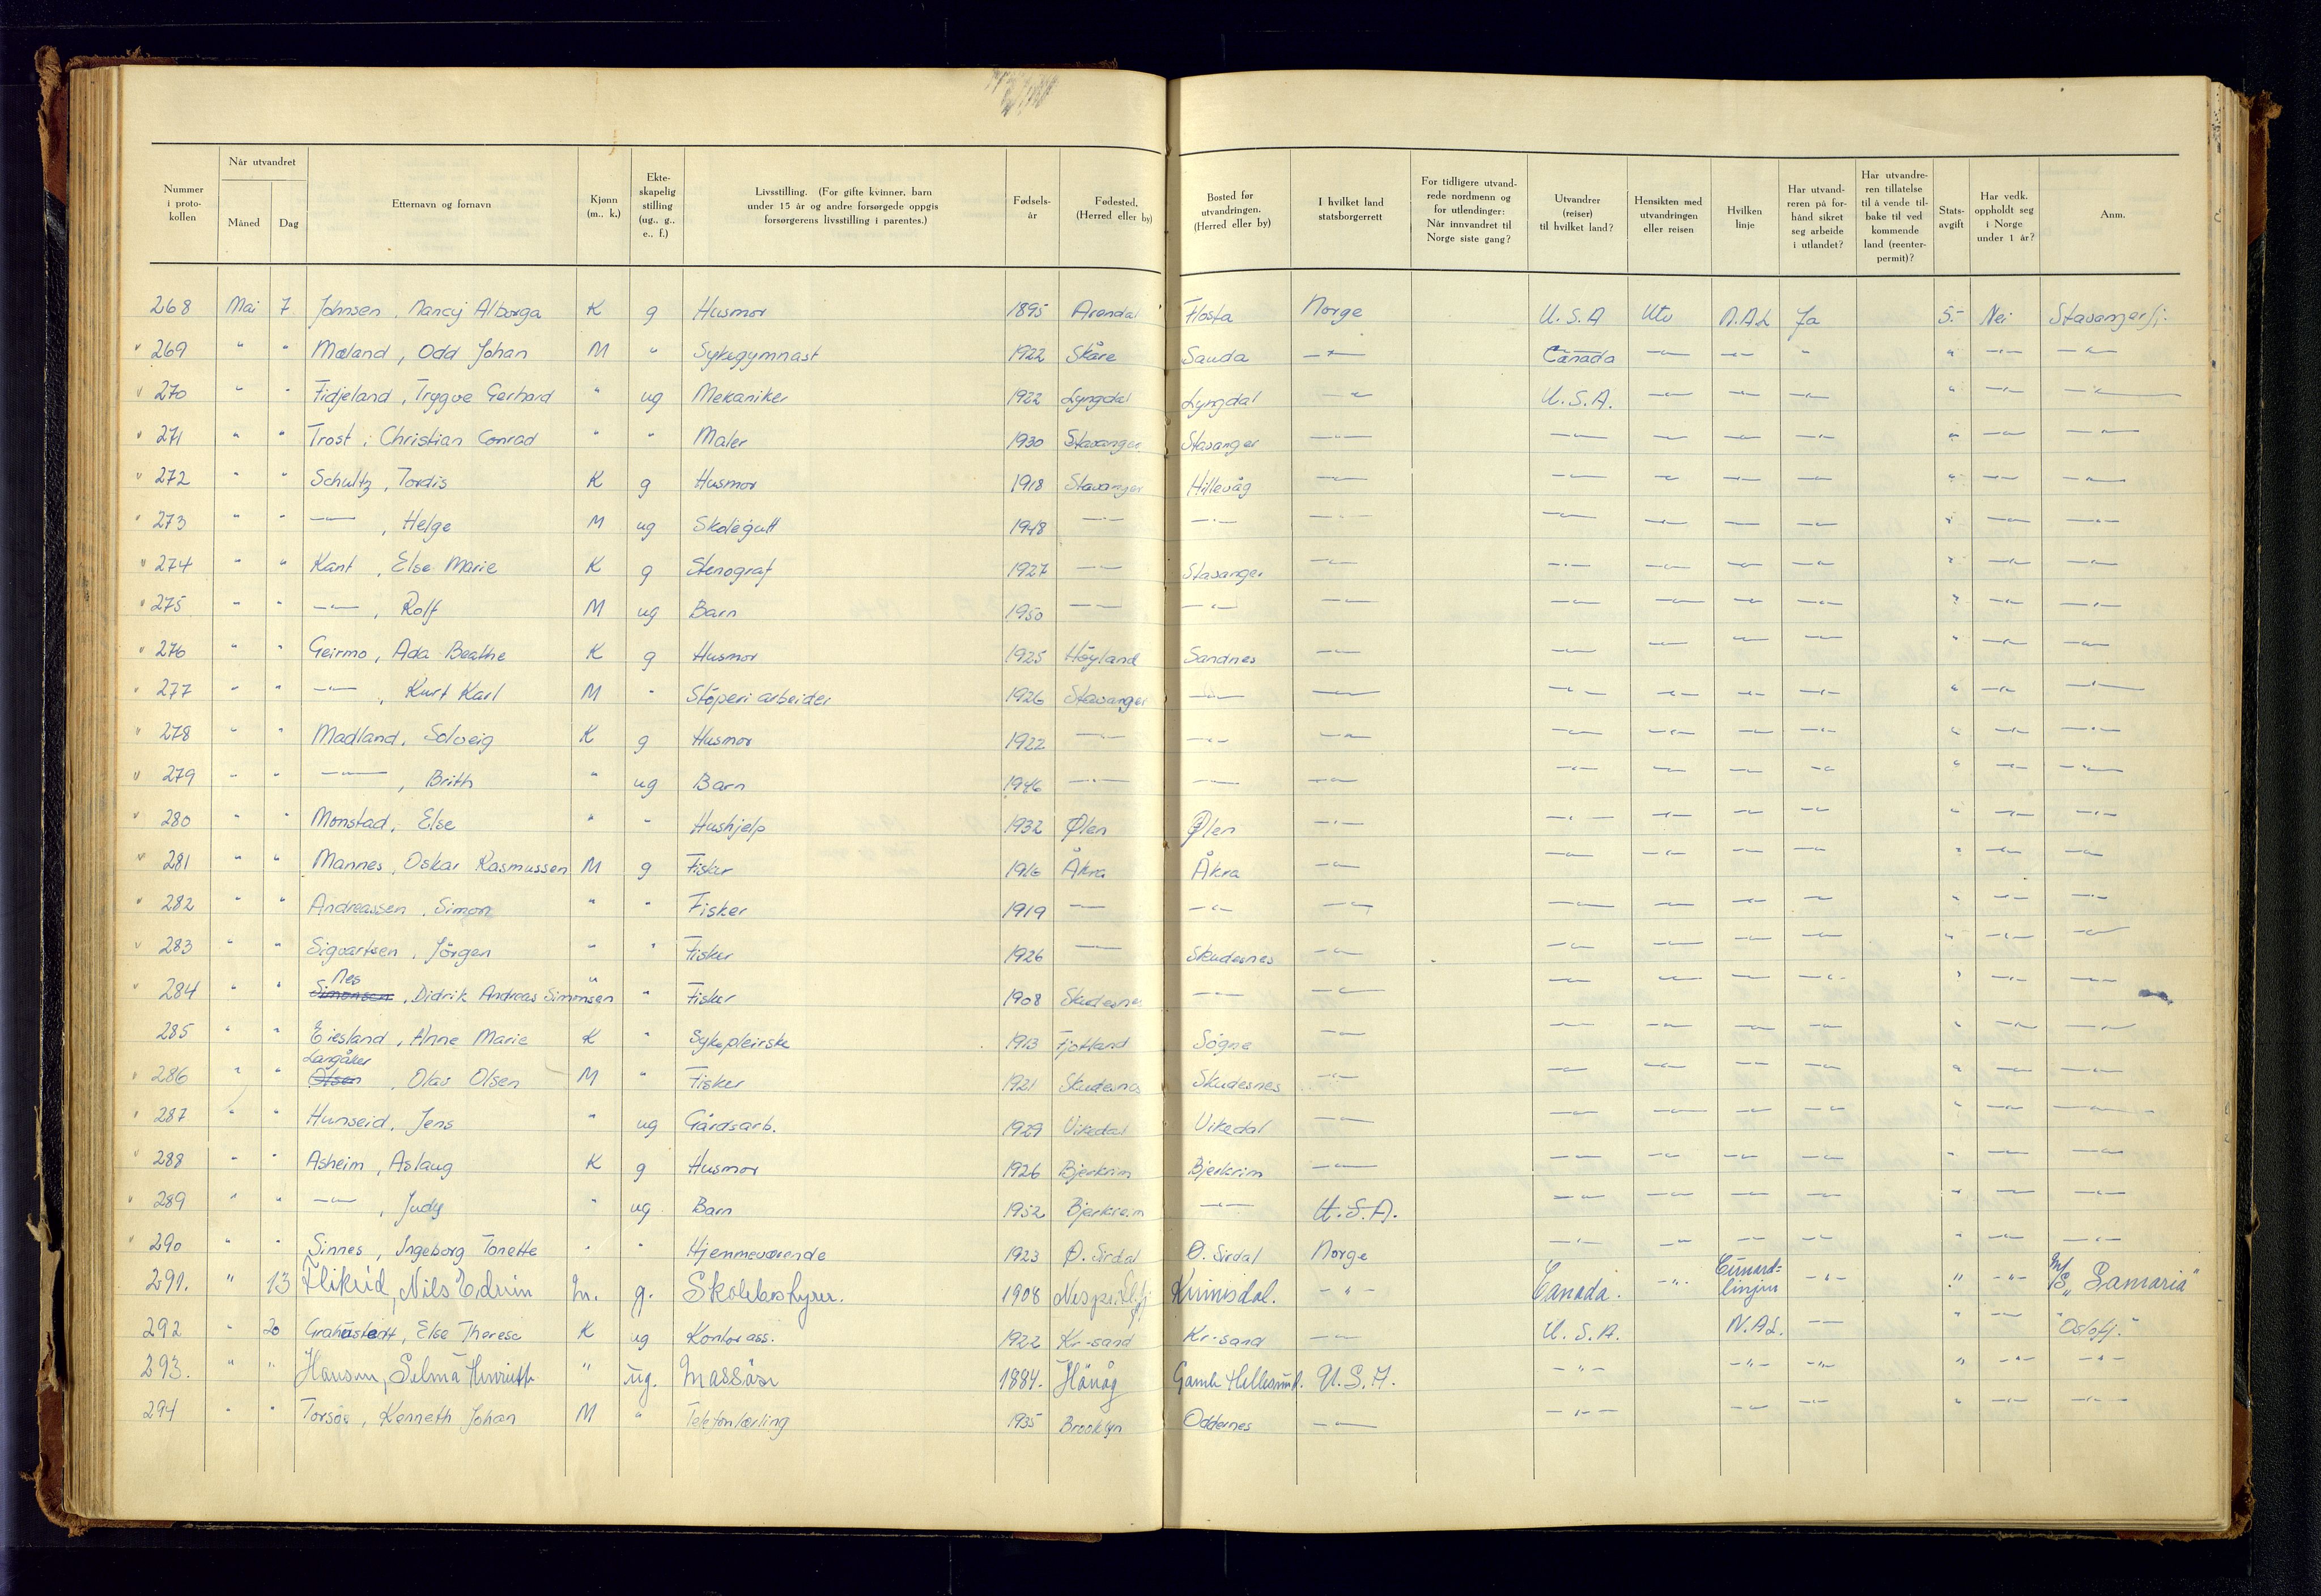 Nummer i proto- kollen | Når utvandret: Måned | Dag | Etternavn og fornavn | Kjønn (m., k.) | Ekte- skapelig stilling (ug., g., e., f.) | Livsstilling. (For gifte kvinner, barn under 15 år og andre forsørgede oppgis forsørgerens livsstilling i parentes.) | Fødsels- år | Fødested. (Herred eller by) | Bosted før utvandringen. (Herred eller by) | I hvilket land statsborgerrett | For tidligere utvand- rede nordmenn og for utlendinger: Når innvandret til Norge siste gang? | Utvandrer (reiser) til hvilket land? | Hensikten med utvandringen eller reisen | Hvilken linje | Har utvand- reren på for- hånd sikret seg arbeide i utlandet? | Har utvandre- ren tillatelse til å vende til- bake til ved kommende land (reenter- permit)? | Stats- avgift | Har vedk. oppholdt seg i Norge under 1 år? | Anm.
268 Mai 7 Johnsen, Nancy Alborga K g Husmor 1895 Arendal Flosta Norge U.S.A Utv N.A.L Ja 5.- Nei Stavangerfj.
269 " " Mæland, Odd Johan M " Sykegymnast 1922 Skåre Sauda —"— Canada —"— —"— " " —"— —"—
270 " " Fidjeland, Trygve Gerhard " ug Mekaniker 1922 Lyngdal Lyngdal —"— U.S.A. —"— —"— —"— " —"— —"—
271 " " Trost, Christian Conrad " " Maler 1930 Stavanger Stavanger —"— —"— —"— —"— —"— " —"— —"—
272 " " Schultz, Tordis K g Husmor 1918 Stavanger Hillevåg —"— —"— —"— —"— —"— " —"— —"—
273 " " —"—, Helge M ug Skolegutt 1948 —"— —"— —"— —"— —"— —"— —"— " —"— —"—
274 " " Kant, Else Marie K g Stenograf 1927 —"— Stavanger —"— —"— —"— —"— —"— " —"— —"—
275 " " —"—, Rolf M ug Barn 1950 —"— —"— —"— —"— —"— —"— —"— " —"— —"—
276 " " Geirmo, Ada Beathe K g Husmor 1925 Höyland Sandnes —"— —"— —"— —"— —"— " —"— —"—
277 " " —"—, Kurt Karl M " Stöperiarbeider 1926 Stavanger —"— —"— —"— —"— —"— —"— " —"— —"—
278 " " Madland, Solveig K g Husmor 1922 —"— —"— —"— —"— —"— —"— —"— " —"— —"—
279 " " —"—, Brith " ug Barn 1946 —"— —"— —"— —"— —"— —"— —"— " —"— —"—
280 " " Monstad, Else " " Hushjelp 1932 Ølen Ølen —"— —"— —"— —"— —"— " —"— —"—
281 " " Mannes, Oskar Rasmussen M g Fisker 1916 Åkra Åkra —"— —"— —"— —"— —"— " —"— —"—
282 " " Andreassen, Simon " " Fisker 1919 —"— —"— —"— —"— —"— —"— —"— " —"— —"—
283 " " Sigvartsen, Jörgen " " Fisker 1926 —"— Skudesnes —"— —"— —"— —"— —"— " —"— —"—
Nes
284 " " Simonsen, Didrik Andreas Simonsen " " Fisker 1908 Skudesnes —"— —"— —"— —"— —"— —"— " —"— —"—
285 " " Eiesland, Anne Marie K " Sykepleirske 1913 Fjotland Sögne —"— —"— —"— —"— —"— " —"— —"—
Langåker
286 " " Olsen, Olav Olsen M " Fisker 1921 Skudesnes Skudesnes —"— —"— —"— —"— " —"— —"—
287 " " Hunseid, Jens " ug Gårdsarb. 1929 Vikedal Vikedal —"— —"— —"— —"— —"— " —"— —"—
288 " " Asheim, Aslaug K g Husmor 1926 Bjerkrim Bjerkrim —"— —"— —"— —"— —"— " —"— —"—
289 " " —"—, Judy " ug Barn 1952 Bjerkreim —"— U.S.A. —"— —"— —"— —"— " —"— —"—
290 " " Sinnes, Ingeborg Tonette " " Hjemmeværende 1923 Ø. Sirdal Ø. Sirdal Norge —"— —"— —"— —"— " —"— —"—
291. " 13 Flikeid, Nils Edvin m. g. Skolebestyrer. 1908 Kvinesdal. —"— Canada. —"— Cunard= linjen —"— " —"— M/S „Samaria"
292 " 20 Grahnstedt, Else Therese K ug Kontorass. 1922 Kr.-sand Kr.-sand —"— U.S.A. N.A.L. —"— " —"— "Oslofj."
293. " " Hansen, Selma Henriette " ug. Massöse 1884. Hånåg Gamle Hellesund. U.S.A. —"— —"— —"— " —"— —"—
294 " " Torsöe, Kenneth Johan M " Telefonlærling 1935 Brooklyn Oddernes —"— —"— —"— —"— " —"— —"—